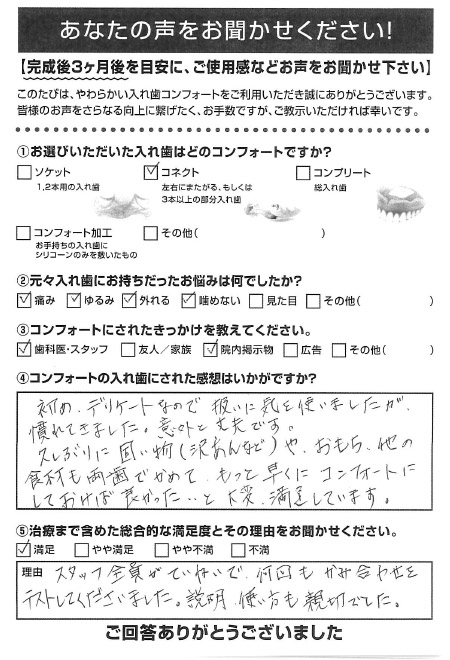 あなたの声をお聞かせください!
【完成後3ヶ月後を目安に、ご使用感などお声をお聞かせ下さい】
このたびは、やわらかい入れ歯コンフォートをご利用いただき誠にありがとうございます。
皆様のお声をさらなる向上に繋げたく、お手数ですが、ご教示いただければ幸いです。
①お選びいただいた入れ歯はどのコンフォートですか?
□ソケット ☑コネクト □コンプリート
1,2本用の入れ歯 左右にまたがる、もしくは 総入れ歯
3本以上の部分入れ歯
□コンフォート加工 □その他( )
お手持ちの入れ歯に
シリコーンのみを敷いたもの
②元々入れ歯にお持ちだったお悩みは何でしたか?
☑痛み ☑ゆるみ ☑外れる ☑噛めない □見た目 □その他( )
③コンフォートにされたきっかけを教えてください。
☑歯科医・スタッフ □友人/家族 ☑院内掲示物 □広告 □その他( )
④コンフォートの入れ歯にされた感想はいかがですか?
初め、デリケートなので 扱いに気を使いましたが、
慣れてきました。意外と丈夫です。
久しぶりに 固い物(沢あんなど)や、おもち、他の
食材も両歯でかめて、もっと早くに コンフォートに
しておけば 良かった…と 大変、満足しています。
⑤治療まで含めた総合的な満足度とその理由をお聞かせください。
☑満足 □やや満足 □やや不満 □不満
理由 スタッフ全員がていねいで、何回も かみ合わせを
テストしてくださいました。説明、使い方も 親切でした。
ご回答ありがとうございました